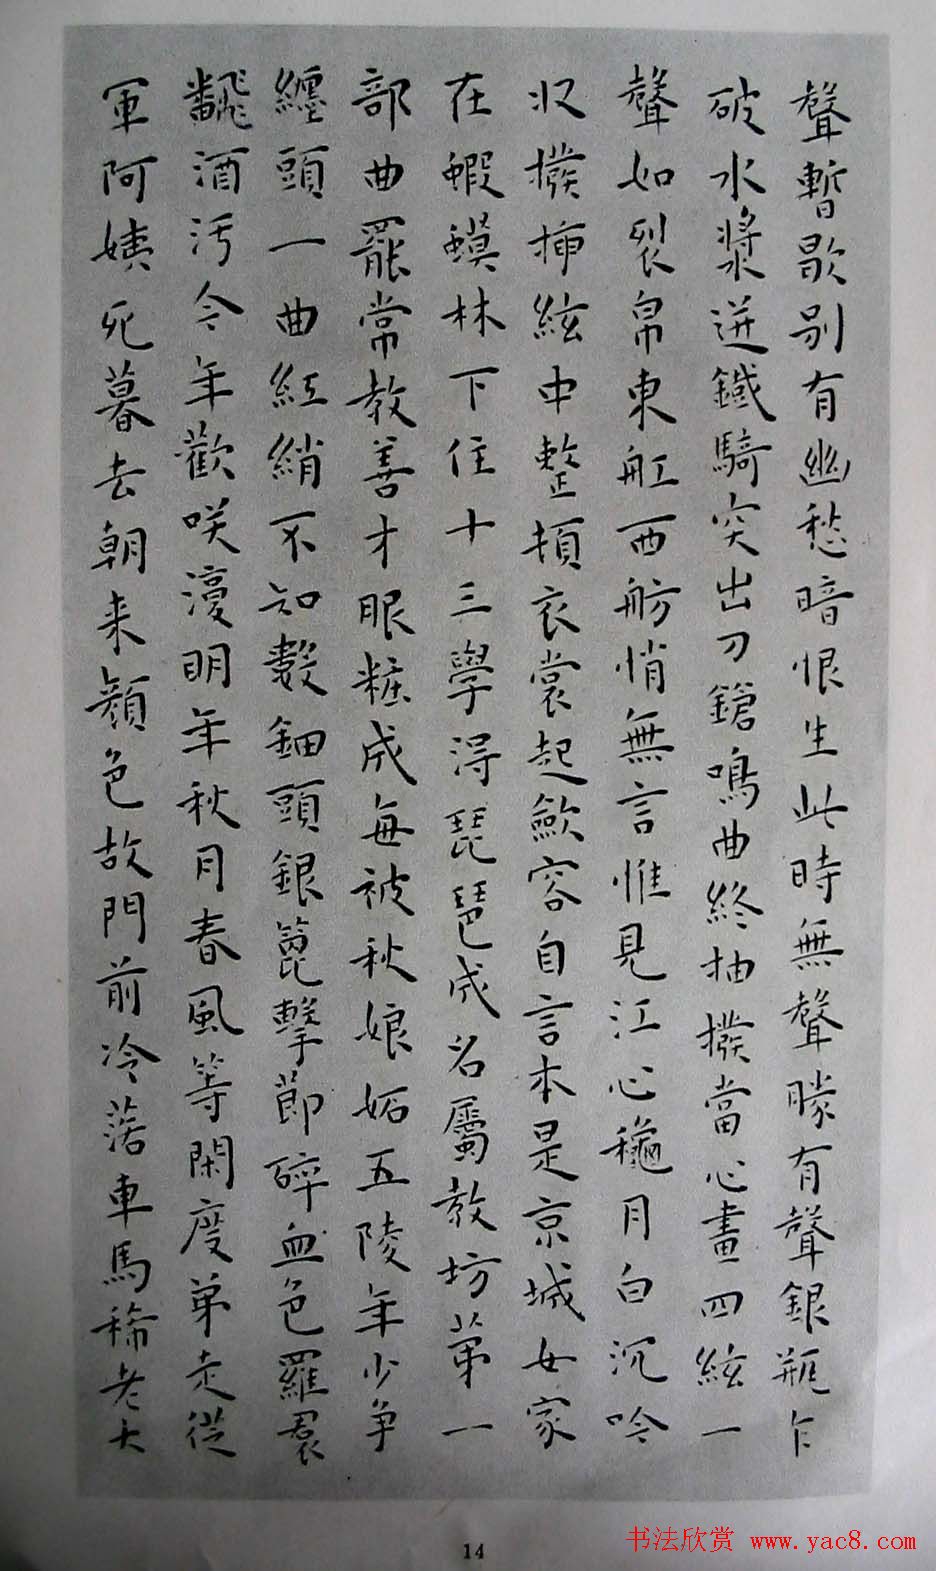 聲暫歇別有幽愁暗恨生此時無聲勝有聲銀瓶乍
破水漿迸鐵騎突出刀鎗鳴曲終抽撥當心畫四絃一
聲如裂帛東舡西舫悄無言惟見江心龝月白沉吟
収撥插絃中整頓衣裳起歛容自言本是京城女家
在蝦蟆林下住十三學得琵琶成名屬教坊第一
部曲罷常教善才眼粧成每被秋娘妬五陵年少争
纏頭一曲紅綃不知數鈿頭銀篦擊節碎血色羅裠
飜酒污今年歡咲復明年秋月春風等閑度弟走從
軍阿姨死暮去朝来顏色故門前冷落車馬稀老大
14
书法欣赏 www.yac8.com